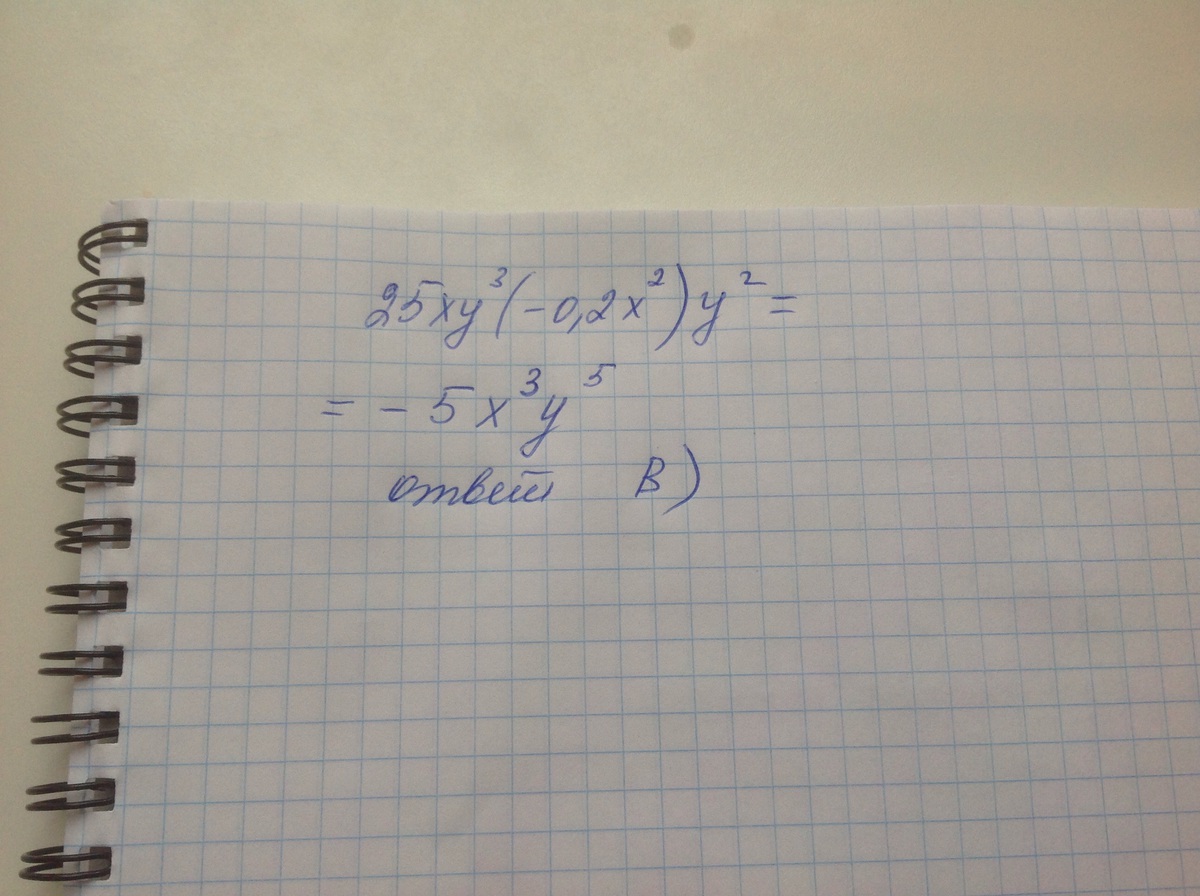 25xy³(-0,2x²)y²=
= - 5x³y⁵
ответ В)